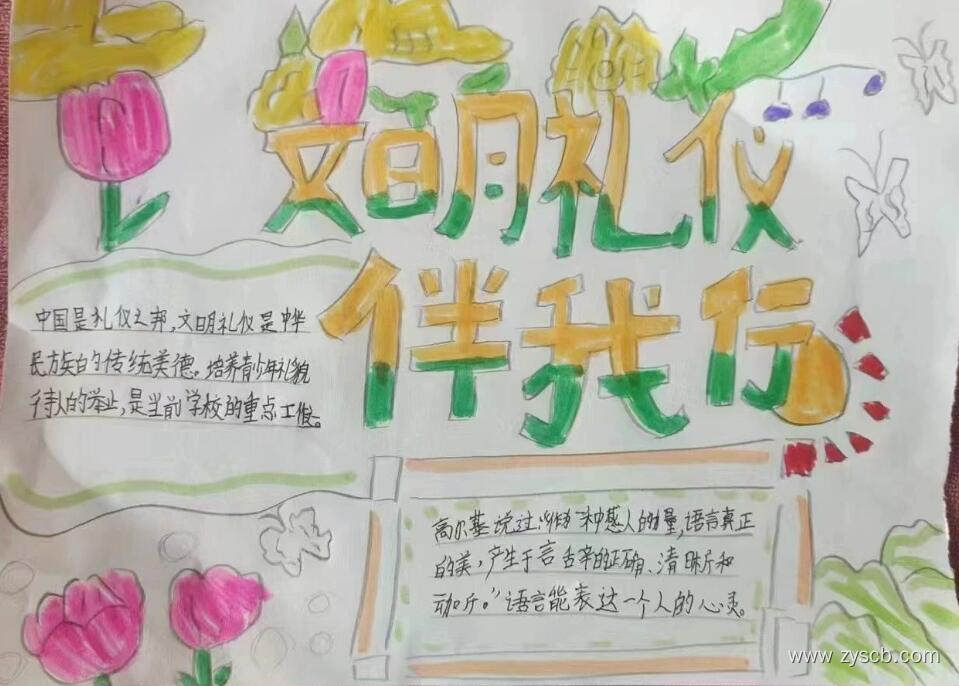 文明礼仪
伴我行
中国是礼仪之邦,文明礼仪是中华
民族的传统美德。培养青少年礼貌
待人的举止,是当前学校的重点工作。
高尔基说过:"作为一种感人的力量,语言真正
的美,产生于言辞的正确、清晰和
动听。"语言能表达一个人的心灵。
www.zyscb.com